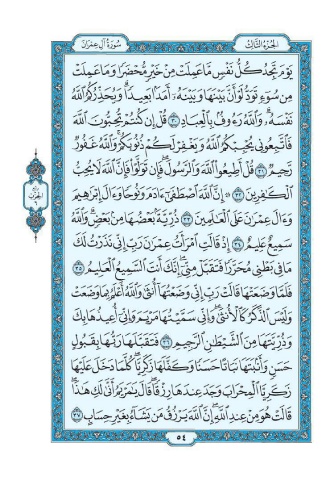 الجزء الثالث
سورة آل عمران
يَوْمَ تَجِدُ كُلُّ نَفْسٍ مَّا عَمِلَتْ مِنْ خَيْرٍ مُّحْضَرًا وَمَا عَمِلَتْ
مِن سُوٓءٍ تَوَدُّ لَوْ أَنَّ بَيْنَهَا وَبَيْنَهُۥٓ أَمَدًۢا بَعِيدًا ۗ وَيُحَذِّرُكُمُ ٱللَّهُ
نَفْسَهُۥ ۗ وَٱللَّهُ رَءُوفٌۢ بِٱلْعِبَادِ ٣٠ قُلْ إِن كُنتُمْ تُحِبُّونَ ٱللَّهَ
فَٱتَّبِعُونِى يُحْبِبْكُمُ ٱللَّهُ وَيَغْفِرْ لَكُمْ ذُنُوبَكُمْ ۗ وَٱللَّهُ غَفُورٌ
رَّحِيمٌ ٣١ قُلْ أَطِيعُوا۟ ٱللَّهَ وَٱلرَّسُولَ ۖ فَإِن تَوَلَّوْا۟ فَإِنَّ ٱللَّهَ لَا يُحِبُّ
ٱلْكَٰفِرِينَ ٣٢ ۞ إِنَّ ٱللَّهَ ٱصْطَفَىٰٓ ءَادَمَ وَنُوحًا وَءَالَ إِبْرَٰهِيمَ
وَءَالَ عِمْرَٰنَ عَلَى ٱلْعَٰلَمِينَ ٣٣ ذُرِّيَّةًۢ بَعْضُهَا مِنۢ بَعْضٍ ۗ وَٱللَّهُ
سَمِيعٌ عَلِيمٌ ٣٤ إِذْ قَالَتِ ٱمْرَأَتُ عِمْرَٰنَ رَبِّ إِنِّى نَذَرْتُ لَكَ
مَا فِى بَطْنِى مُحَرَّرًا فَتَقَبَّلْ مِنِّىٓ ۖ إِنَّكَ أَنتَ ٱلسَّمِيعُ ٱلْعَلِيمُ ٣٥
فَلَمَّا وَضَعَتْهَا قَالَتْ رَبِّ إِنِّى وَضَعْتُهَآ أُنثَىٰ وَٱللَّهُ أَعْلَمُ بِمَا وَضَعَتْ
وَلَيْسَ ٱلذَّكَرُ كَٱلْأُنثَىٰ ۖ وَإِنِّى سَمَّيْتُهَا مَرْيَمَ وَإِنِّىٓ أُعِيذُهَا بِكَ
وَذُرِّيَّتَهَا مِنَ ٱلشَّيْطَٰنِ ٱلرَّجِيمِ ٣٦ فَتَقَبَّلَهَا رَبُّهَا بِقَبُولٍ
حَسَنٍ وَأَنۢبَتَهَا نَبَاتًا حَسَنًا وَكَفَّلَهَا زَكَرِيَّا ۖ كُلَّمَا دَخَلَ عَلَيْهَا
زَكَرِيَّا ٱلْمِحْرَابَ وَجَدَ عِندَهَا رِزْقًا ۖ قَالَ يَٰمَرْيَمُ أَنَّىٰ لَكِ هَٰذَا ۖ
قَالَتْ هُوَ مِنْ عِندِ ٱللَّهِ ۖ إِنَّ ٱللَّهَ يَرْزُقُ مَن يَشَآءُ بِغَيْرِ حِسَابٍ ٣٧
ربع
الحزب
٥٤